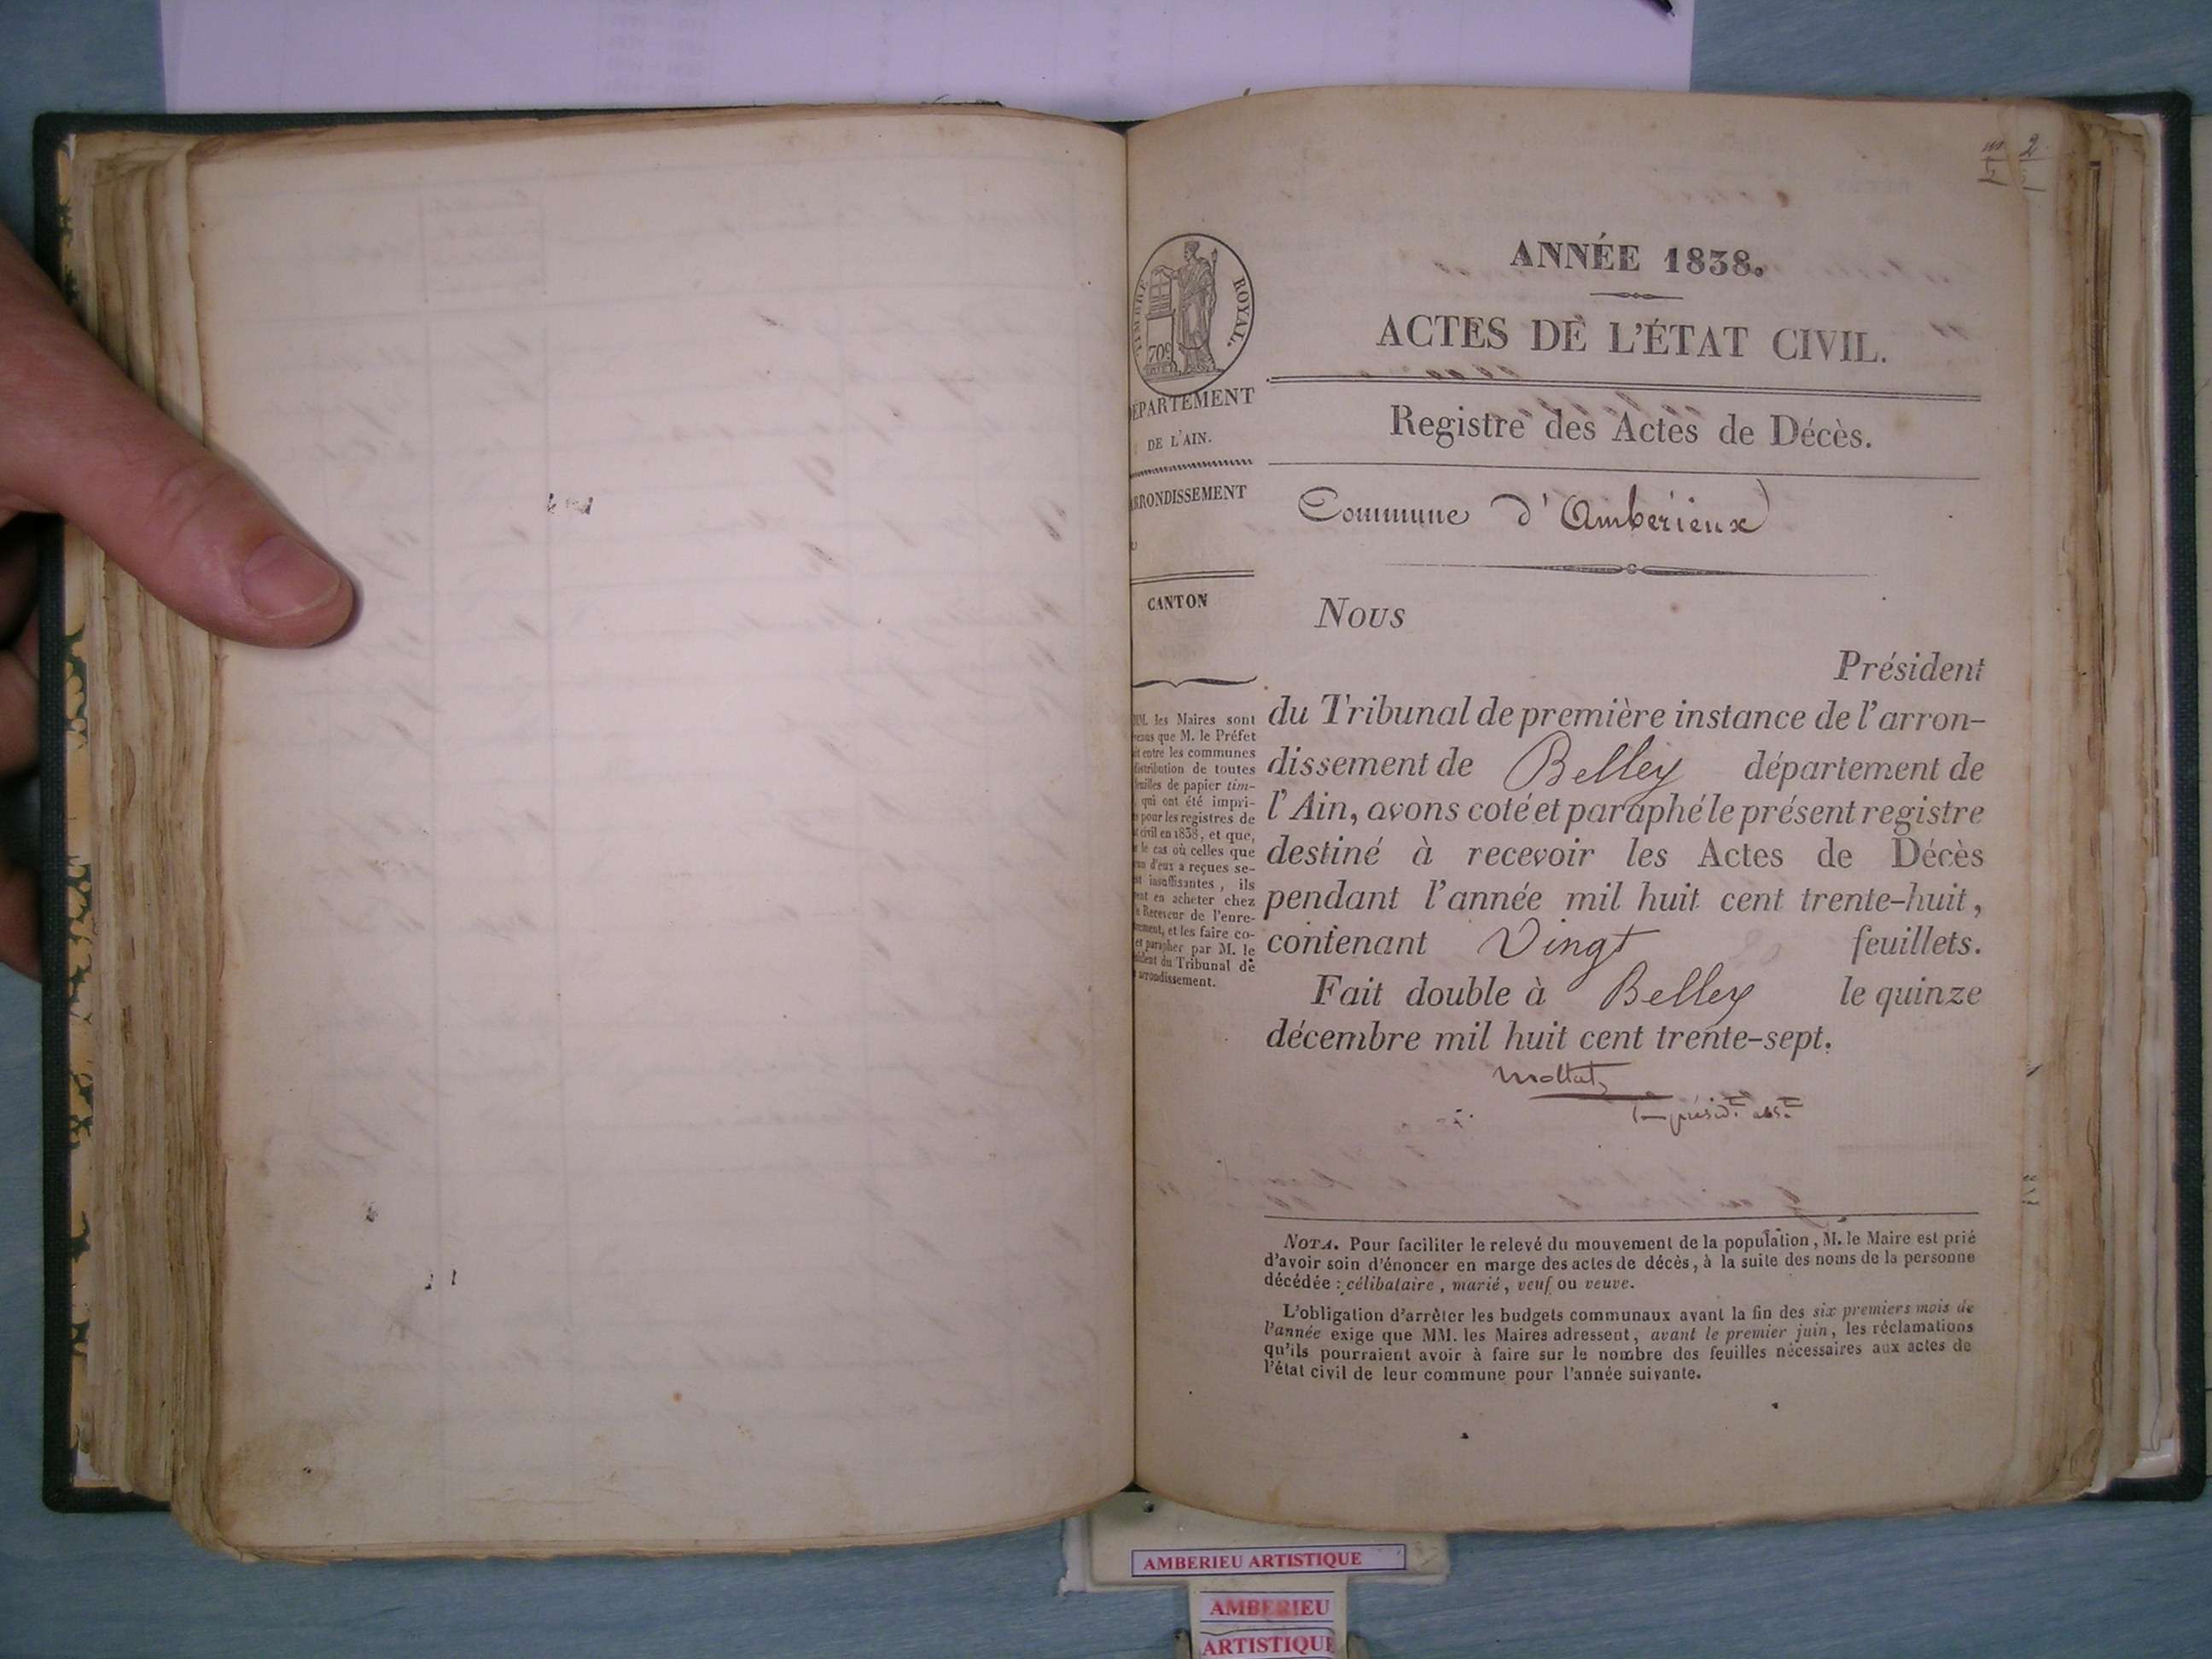 ANNÉE 1838.
ACTES DE L'ÉTAT CIVIL.
Registre des Actes de Décès.
Commune d'Ambérieux
TIMBRE ROYAL.
709
DÉPARTEMENT
DE L'AIN.
ARRONDISSEMENT
CANTON
MM. les Maires sont
que M. le Préfet
entre les communes
distribution de toutes
feuilles de papier tim-
qui ont été impri-
pour les registres de
civil en 1838, et que,
le cas où celles que
d'eux a reçues se-
insuffisantes, ils
en acheter chez
Receveur de l'enre-
et les faire co-
et parapher par M. le
du Tribunal de
arrondissement.
Nous
Président
du Tribunal de première instance de l'arron-
dissement de Belley département de
l'Ain, avons coté et paraphé le présent registre
destiné à recevoir les Actes de Décès
pendant l'année mil huit cent trente-huit,
contenant Vingt feuillets.
Fait double à Belley le quinze
décembre mil huit cent trente-sept.
NOTA. Pour faciliter le relevé du mouvement de la population, M. le Maire est prié
d'avoir soin d'énoncer en marge des actes de décès, à la suite des noms de la personne
décédée : célibataire, marié, veuf ou veuve.
L'obligation d'arrêter les budgets communaux avant la fin des six premiers mois de
l'année exige que MM. les Maires adressent, avant le premier juin, les réclamations
qu'ils pourraient avoir à faire sur le nombre des feuilles nécessaires aux actes de
l'état civil de leur commune pour l'année suivante.
AMBERIEU ARTISTIQUE
AMBERIEU
ARTISTIQUE